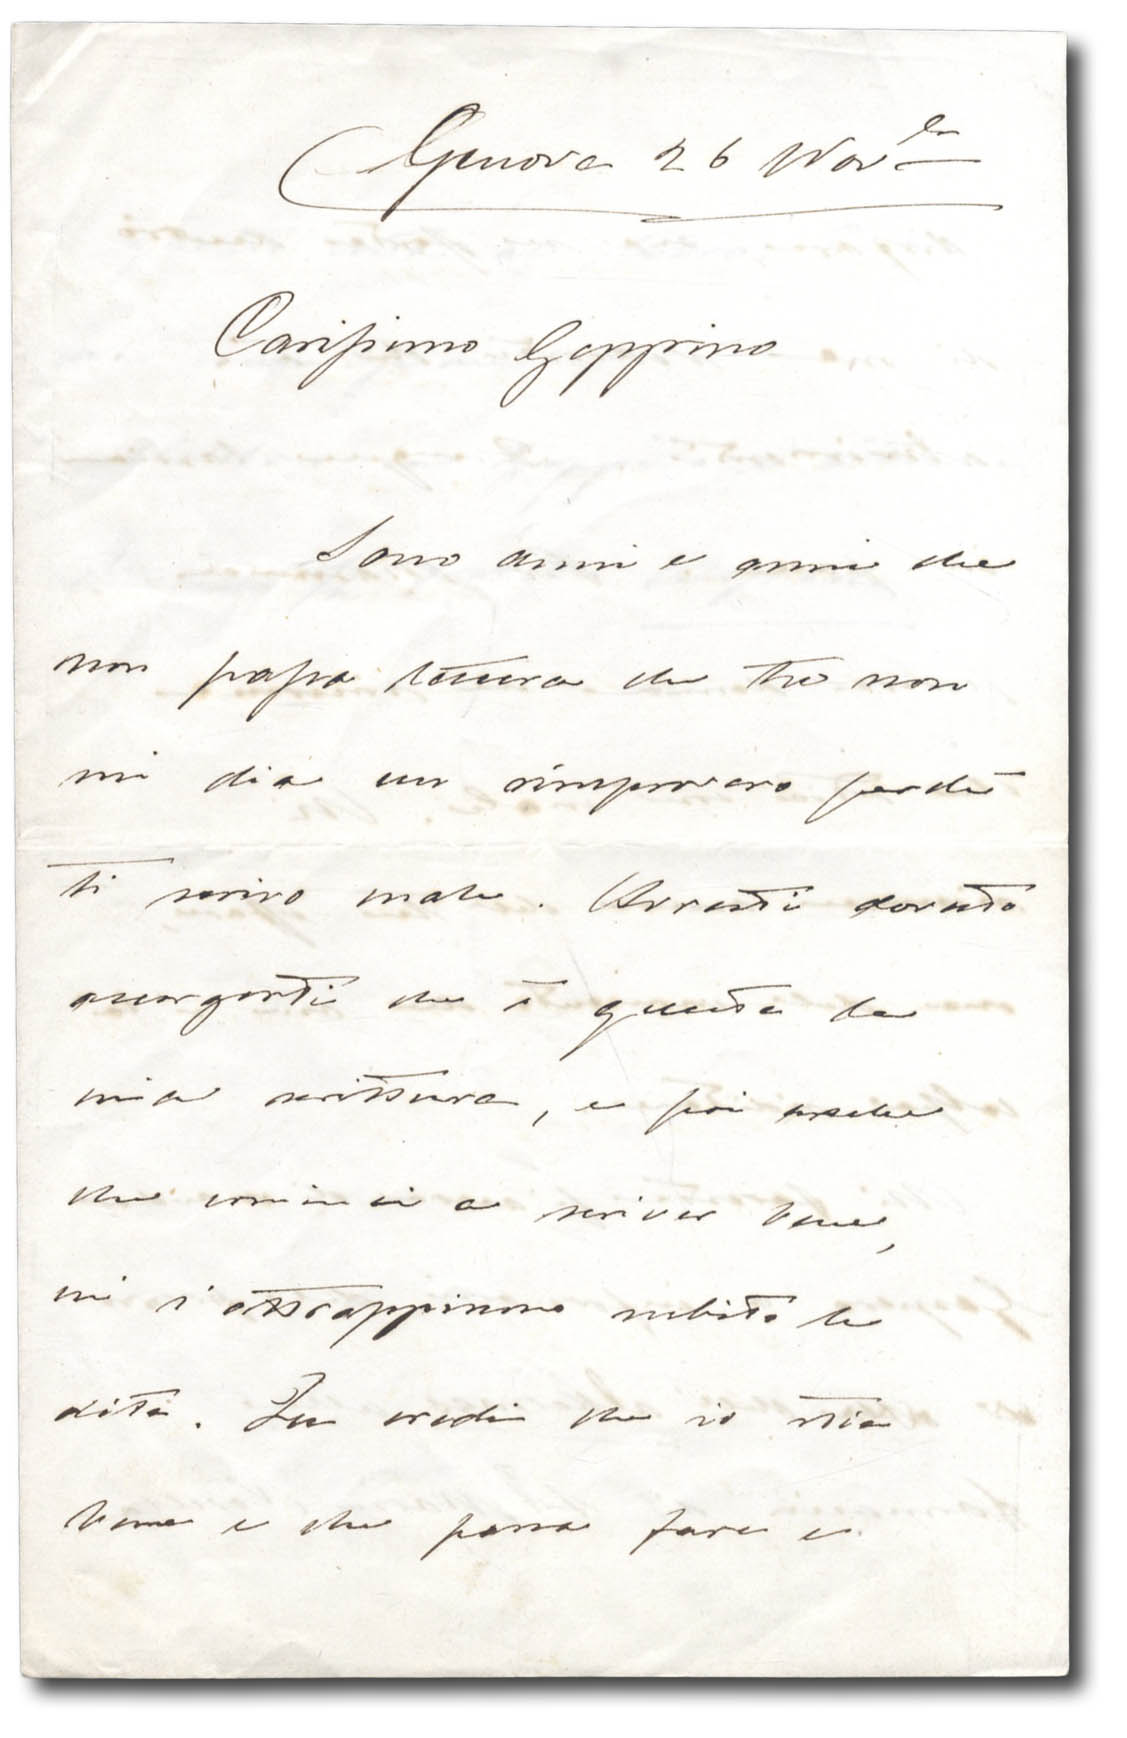 Genova 26 Nov.bre
Carissimo Geppino
Sono anni e anni che
non passa lettera che tu non
mi dia un rimprovero perchè
ti scrivo male. Avresti dovuto
accorgerti che è questa la
mia scrittura, e poi anche
che cominci a scriver bene,
mi s'attrappiscono subito le
dita. Tu credi che io stia
bene e che possa fare e